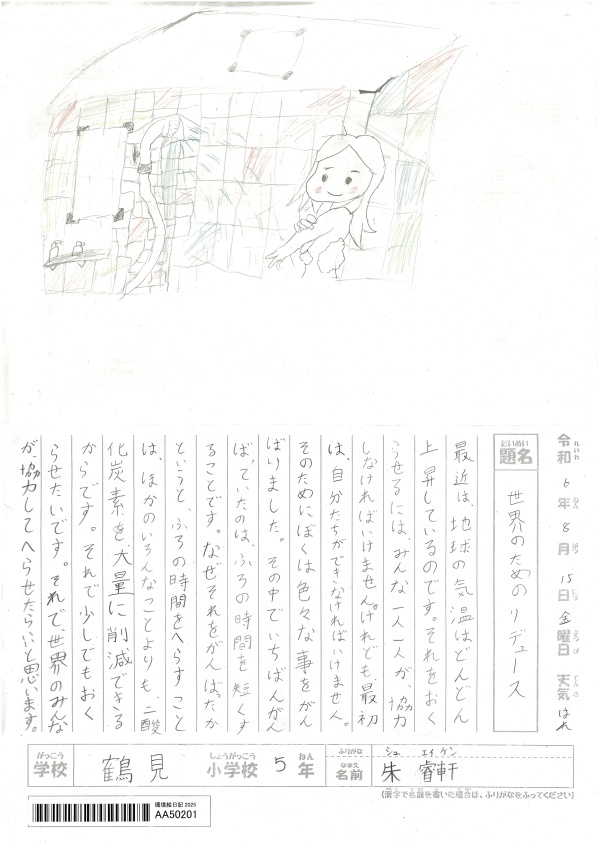 令和6年8月15日金曜日 天気 はれ
れいわ ねん がつ にち ようび てんき
だいめい
題名
世界のためのリデュース
最近は、地球の気温はどんどん
上昇しているのです。それをおく
らせるには、みんな一人一人が、協力
しなければいけません。けれども、最初
は、自分たちができなければいけません。
そのためにぼくは色々な事をがん
ばりました。その中でいちばんがん
ばっていたのは、ふろの時間を短くす
ることです。なぜそれをがんばったか
というと、ふろの時間をへらすこと
は、ほかのいろんなことよりも、二酸
化炭素を、大量に削減できる
からです。それで少しでもおく
らせたいです。それで、世界のみんな
が、協力してへらせたらいいと思います。
がっこう
学校
鶴見
しょうがっこう
小学校
5
ねん
年
ふりがな
シュ エイケン
なまえ
名前
朱 睿軒
(漢字で名前を書いた場合は、ふりがなをふってください)
環境絵日記 2025
AA50201